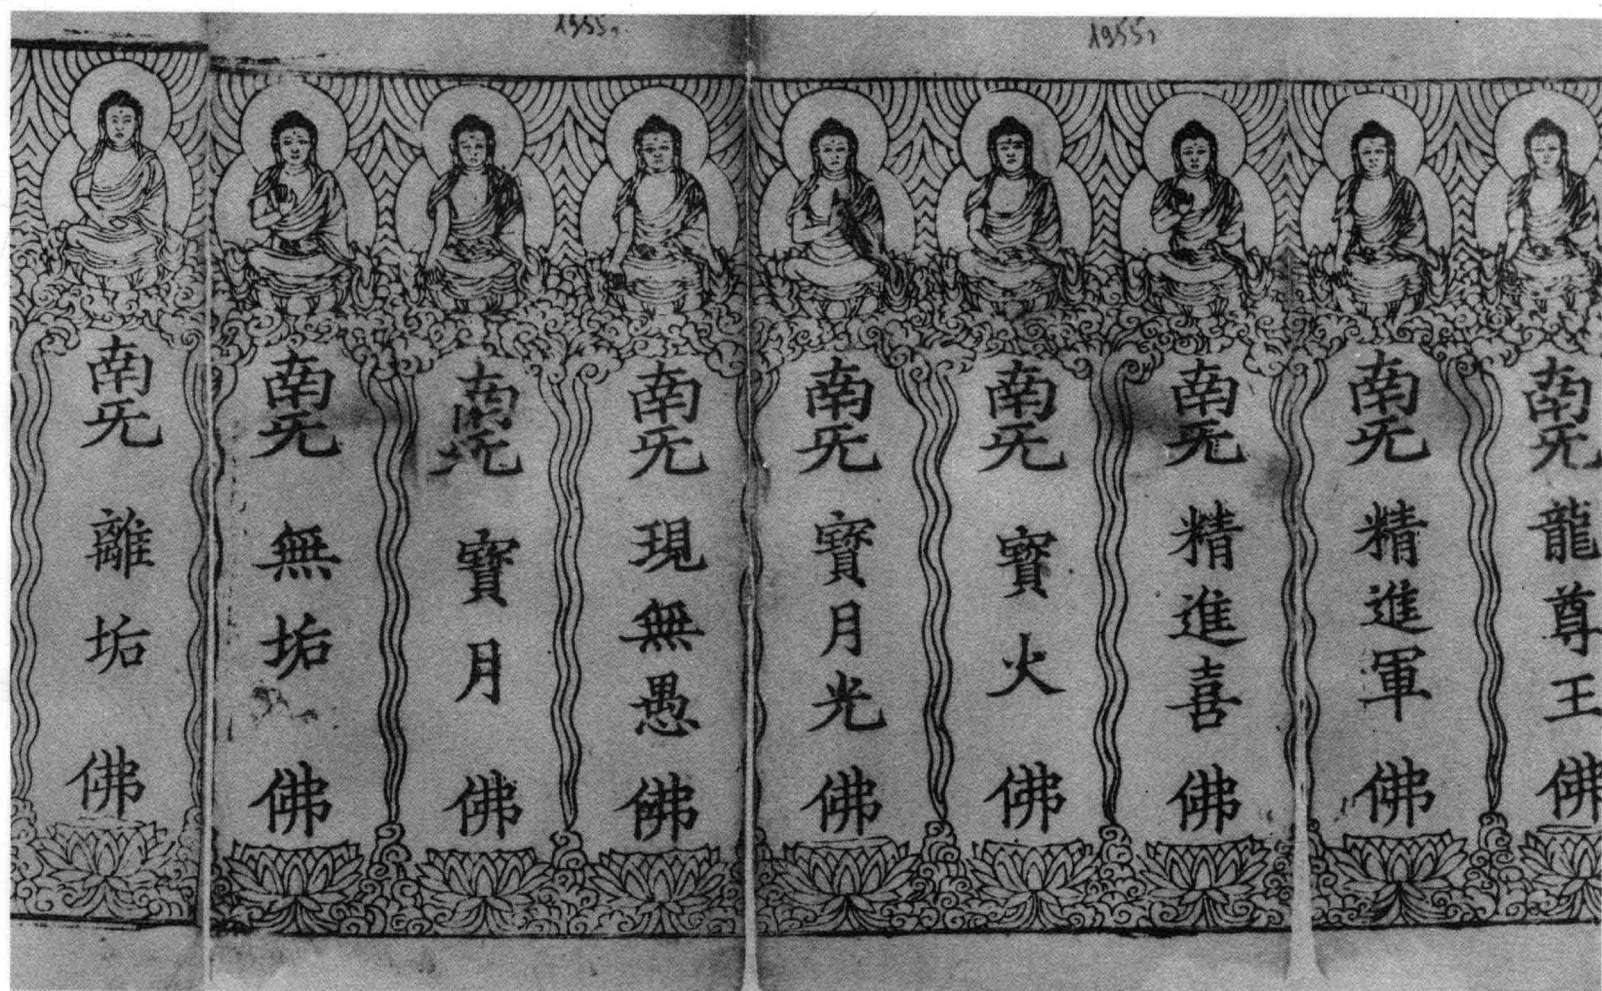 1955,
1955,
南旡龍尊王佛
南旡精進軍佛
南旡精進喜佛
南旡寶火佛
南旡寶月光佛
南旡現無愚佛
南旡寶月佛
南旡無垢佛
南旡離垢佛